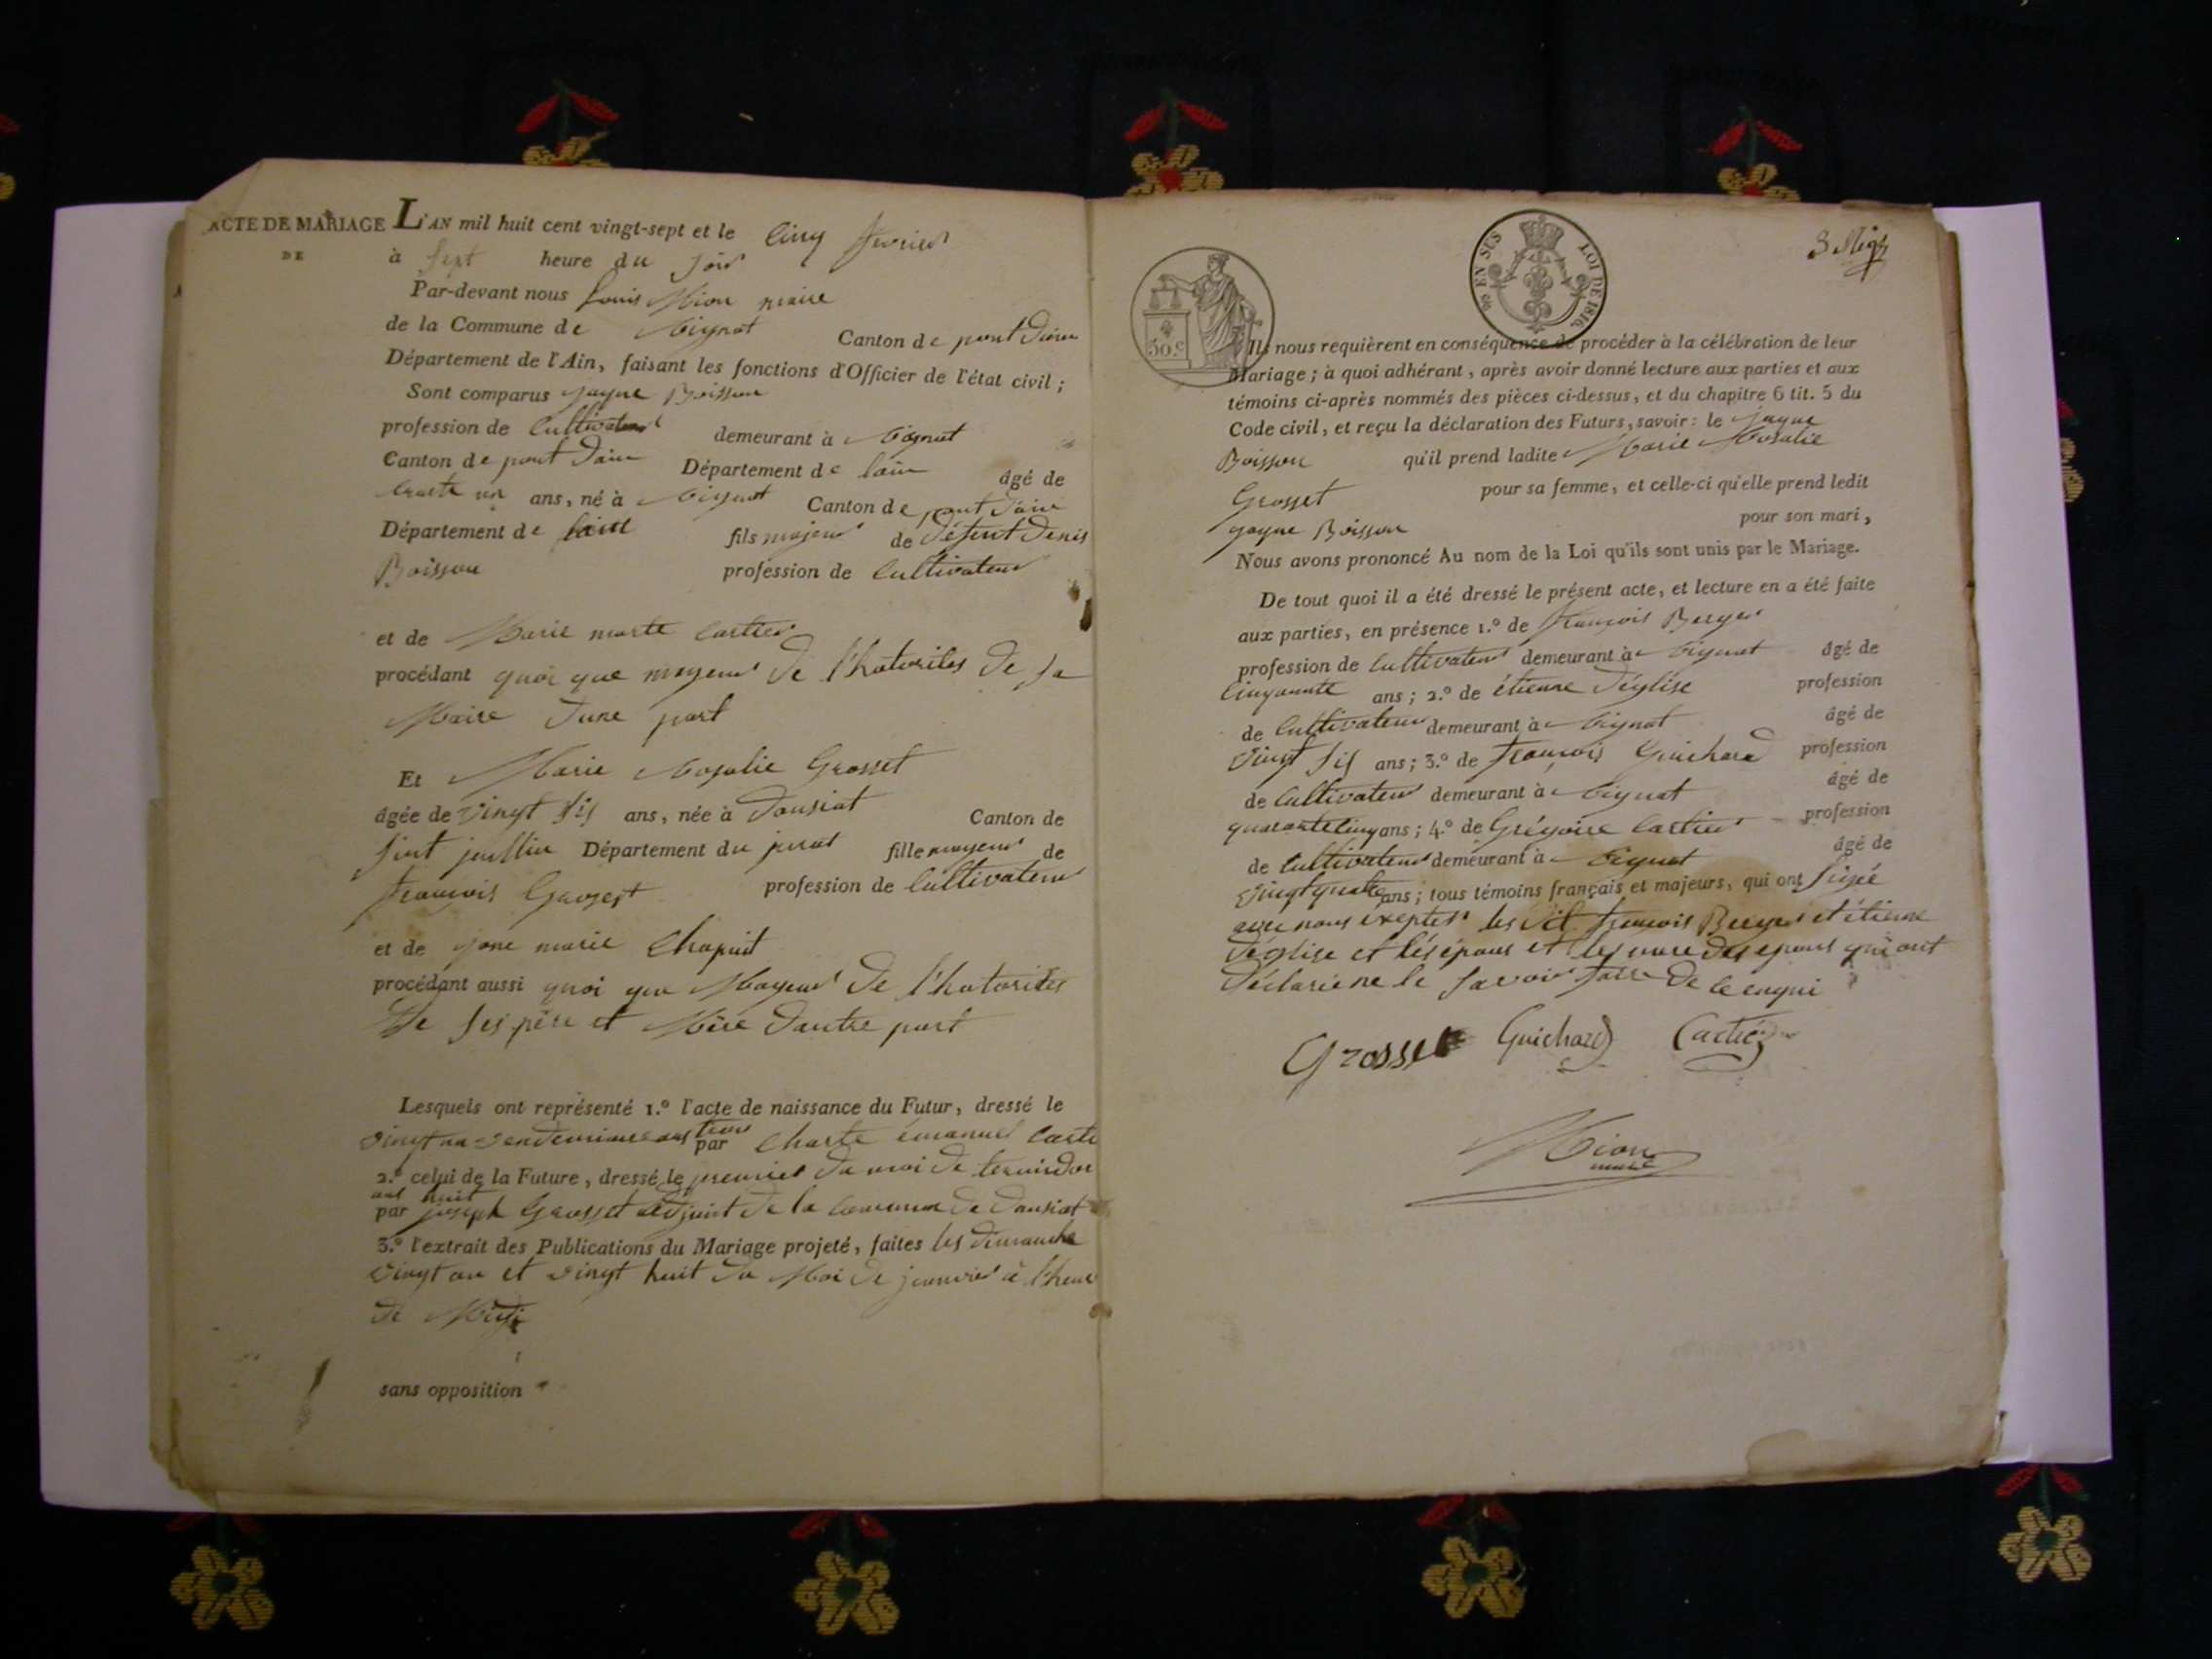 ACTE DE MARIAGE
DE
L'AN mil huit cent vingt-sept et le cinq fevrier
à sept heure du soir
Par-devant nous Louis Mion maire
de la Commune de Rignat Canton de pont Dain
Département de l'Ain, faisant les fonctions d'Officier de l'état civil ;
Sont comparus jaque Boisson
profession de Cultivateur demeurant à Rignat
Canton de pont Dain Département de lain âgé de
trante un ans, né à Rignat Canton de pont Dain
Département de fils majeur de défunt Denis
Boisson profession de Cultivateur
et de Marie marte Cartier
procédant quoi que mageur de l'hatorites de sa
Maire Dune part
Et Marie Rosalie Grosset
âgée de vingt sis ans, née à Dansiat Canton de
sint jullien Département du jurat fille mageur de
francois Grosset profession de Cultivateur
et de jane marie Chapuit
procédant aussi quoi que Mageur de l'hatorites
De ses père et Mère Dautre part
Lesquels ont représenté 1.º l'acte de naissance du Futur, dressé le
vingt un par Charle émanuel
2.º celui de la Future, dressé le premier du moi de termidor
ans huit
par joseph Grosset adjoint de la commune de Dansiat
3.º l'extrait des Publications du Mariage projeté, faites les dimanche
vingt un et vingt huit du Moi de janvier à l'heur
de Midi
sans opposition
30.c
EN SUS
LOI DE 1816.
Ils nous requièrent en conséquence de procéder à la célébration de leur
Mariage ; à quoi adhérant, après avoir donné lecture aux parties et aux
témoins ci-après nommés des pièces ci-dessus, et du chapitre 6 tit. 5 du
Code civil, et reçu la déclaration des Futurs, savoir : le jaque
Boisson qu'il prend ladite Marie Rosalie
Grosset pour sa femme, et celle-ci qu'elle prend ledit
jaque Boisson pour son mari,
Nous avons prononcé Au nom de la Loi qu'ils sont unis par le Mariage.
De tout quoi il a été dressé le présent acte, et lecture en a été faite
aux parties, en présence 1.º de francois Berger
profession de Cultivateur demeurant à Rignat âgé de
Cinquante ans ; 2.º de étienne déglise profession
de Cultivateur demeurant à Rignat âgé de
vingt sis ans ; 3.º de francois Guichard profession
de Cultivateur demeurant à Rignat âgé de
quarante cinq ans ; 4.º de Grégoire Cartier profession
de Cultivateur demeurant à Rignat âgé de
vingt quatre ans ; tous témoins français et majeurs, qui ont signé
avec nous exeptes les dit francois Berger et étienne
déglise et les épous et les mere des epous qui ont
déclarie ne le savoir faire de ce enqui
Grosset Guichard Cartier
Mion
maire